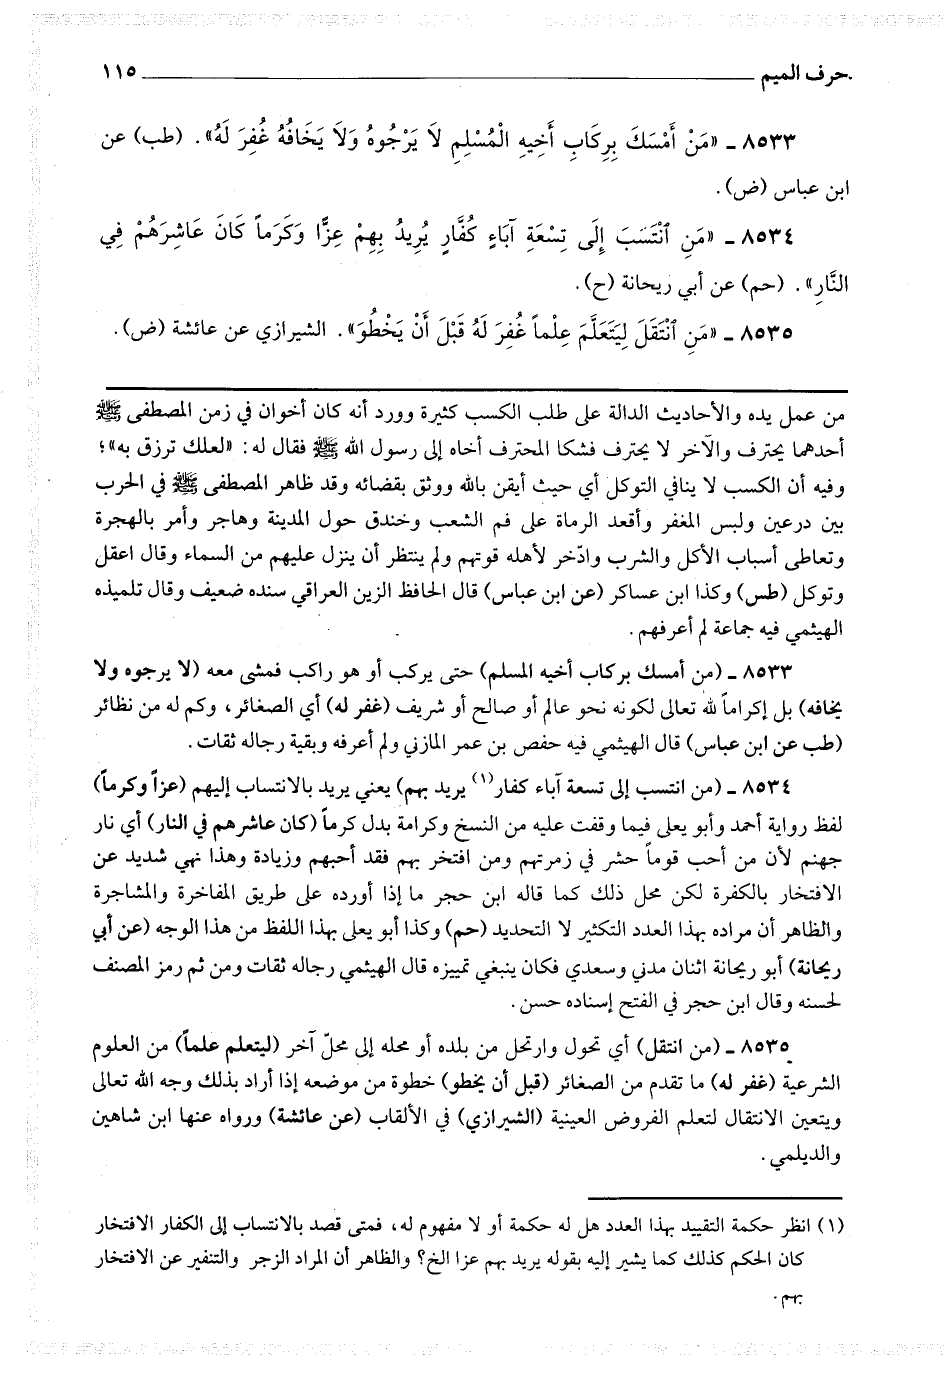 حرف الميم ١١٥
٨٥٣٣ ـ «مَنْ أَمْسَكَ بِرِكَابِ أَخِيهِ الْمُسْلِمِ لَا يَرْجُوهُ وَلَا يَخَافُهُ غُفِرَ لَهُ». (طب) عن
ابن عباس (ض).
٨٥٣٤ ـ «مَنِ ٱنْتَسَبَ إِلَى تِسْعَةِ آبَاءٍ كُفَّارٍ يُرِيدُ بِهِمْ عِزًّا وَكَرَماً كَانَ عَاشِرَهُمْ فِي
النَّارِ». (حم) عن أبي ريحانة (ح).
٨٥٣٥ ـ «مَنِ ٱنْتَقَلَ لِيَتَعَلَّمَ عِلْماً غُفِرَ لَهُ قَبْلَ أَنْ يَخْطُوَ». الشيرازي عن عائشة (ض).
من عمل يده والأحاديث الدالة على طلب الكسب كثيرة وورد أنه كان أخوان في زمن المصطفى ﷺ
أحدهما يحترف والآخر لا يحترف فشكا المحترف أخاه إلى رسول الله ﷺ فقال له: «لعلك ترزق به»؛
وفيه أن الكسب لا ينافي التوكل أي حيث أيقن بالله ووثق بقضائه وقد ظاهر المصطفى ﷺ في الحرب
بين درعين ولبس المغفر وأقعد الرماة على فم الشعب وخندق حول المدينة وهاجر وأمر بالهجرة
وتعاطى أسباب الأكل والشرب وادّخر لأهله قوتهم ولم ينتظر أن ينزل عليهم من السماء وقال اعقل
وتوكل (طس) وكذا ابن عساكر (عن ابن عباس) قال الحافظ الزين العراقي سنده ضعيف وقال تلميذه
الهيثمي فيه جماعة لم أعرفهم.
٨٥٣٣ ـ (من أمسك بركاب أخيه المسلم) حتى يركب أو هو راكب فمشى معه (لا يرجوه ولا
يخافه) بل إكراماً لله تعالى لكونه نحو عالم أو صالح أو شريف (غفر له) أي الصغائر، وكم له من نظائر
(طب عن ابن عباس) قال الهيثمي فيه حفص بن عمر المازني ولم أعرفه وبقية رجاله ثقات.
٨٥٣٤ ـ (من انتسب إلى تسعة آباء كفار(١) يريد بهم) يعني يريد بالانتساب إليهم (عزاً وكرماً)
لفظ رواية أحمد وأبو يعلى فيما وقفت عليه من النسخ وكرامة بدل كرماً (كان عاشرهم في النار) أي نار
جهنم لأن من أحب قوماً حشر في زمرتهم ومن افتخر بهم فقد أحبهم وزيادة وهذا نهي شديد عن
الافتخار بالكفرة لكن محل ذلك كما قاله ابن حجر ما إذا أورده على طريق المفاخرة والمشاجرة
والظاهر أن مراده بهذا العدد التكثير لا التحديد (حم) وكذا أبو يعلى بهذا اللفظ من هذا الوجه (عن أبي
ريحانة) أبو ريحانة اثنان مدني وسعدي فكان ينبغي تمييزه قال الهيثمي رجاله ثقات ومن ثم رمز المصنف
لحسنه وقال ابن حجر في الفتح إسناده حسن.
٨٥٣٥ ـ (من انتقل) أي تحول وارتحل من بلده أو محله إلى محلّ آخر (ليتعلم علماً) من العلوم
الشرعية (غفر له) ما تقدم من الصغائر (قبل أن يخطو) خطوة من موضعه إذا أراد بذلك وجه الله تعالى
ويتعين الانتقال لتعلم الفروض العينية (الشيرازي) في الألقاب (عن عائشة) ورواه عنها ابن شاهين
والديلمي.
(١) انظر حكمة التقييد بهذا العدد هل له حكمة أو لا مفهوم له، فمتى قصد بالانتساب إلى الكفار الافتخار
كان الحكم كذلك كما يشير إليه بقوله يريد بهم عزا الخ؟ والظاهر أن المراد الزجر والتنفير عن الافتخار
بهم.